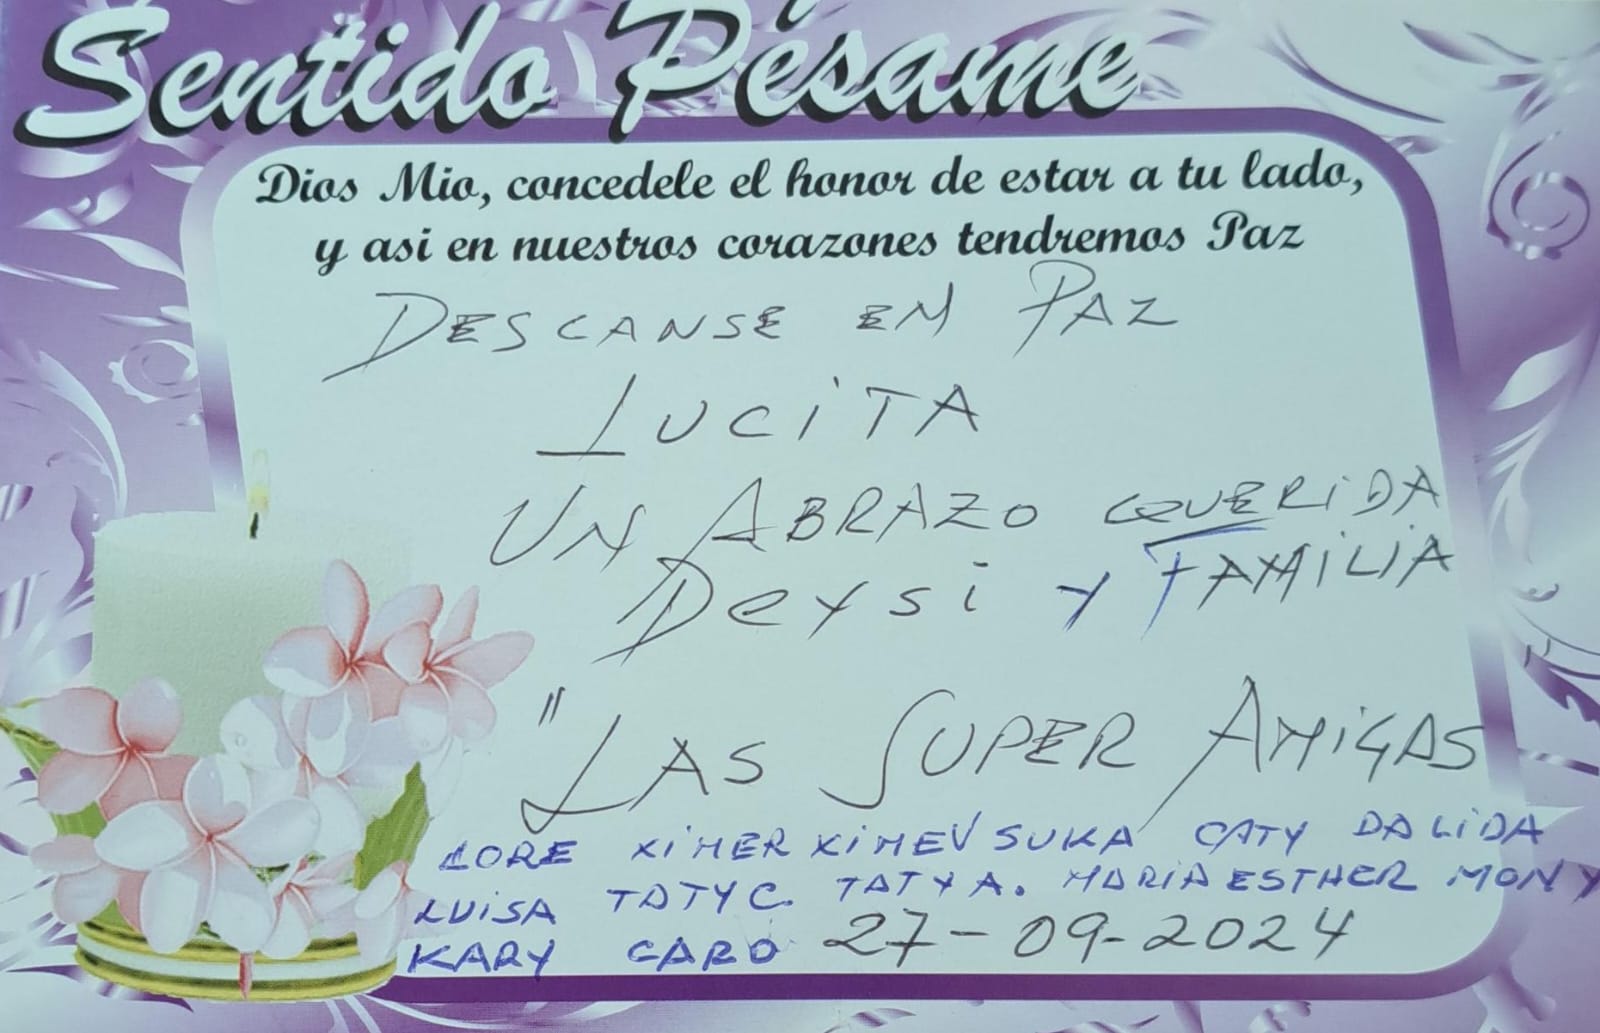 Sentido Pésame
Dios Mio, concedele el honor de estar a tu lado,
y asi en nuestros corazones tendremos Paz
DESCANSE EM PAZ
LUCITA
UN ABRAZO QUERIDA
Deysi y FAMILIA
"LAS SUPER AMIGAS
LORE XIMER XIMEV SUKA CATY DALIDA
LUISA TATY C. TATY A. MARIA ESTHER MONY
KARY CARO 27-09-2024